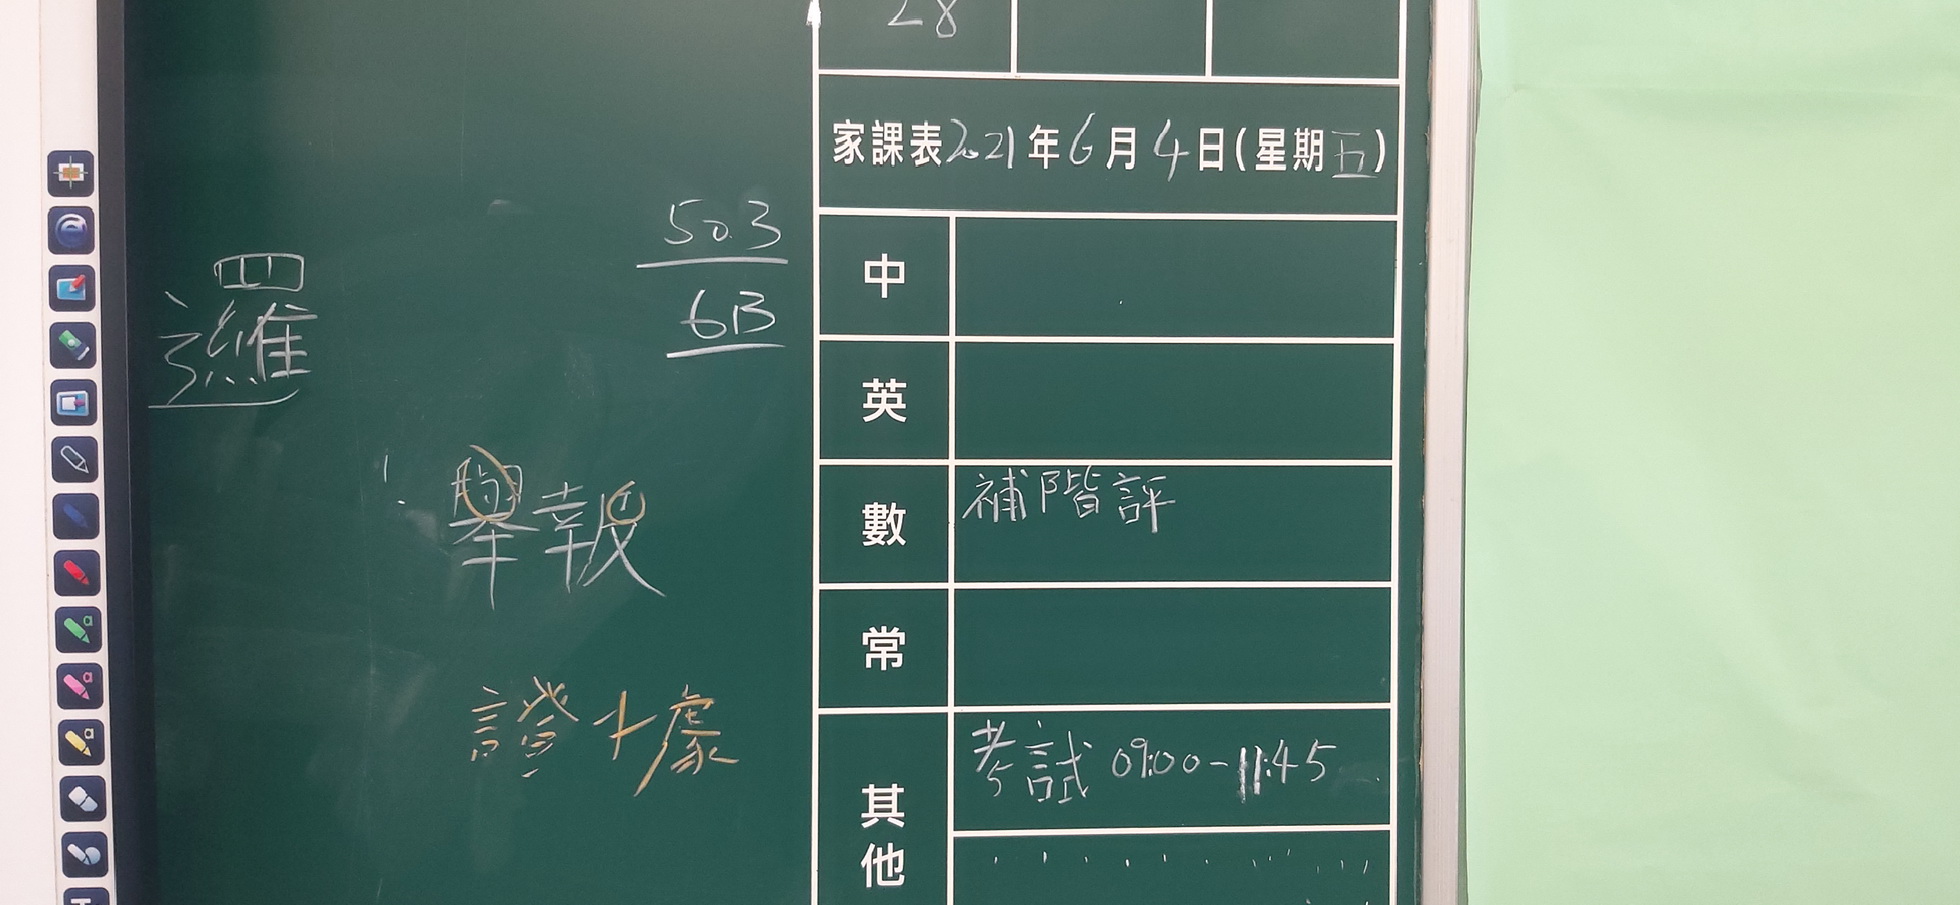 28
家課表2021年6月4日(星期五)
503
6B
邏
舉報
中
英
數 補階評
常
其他 考試 09:00-11:45